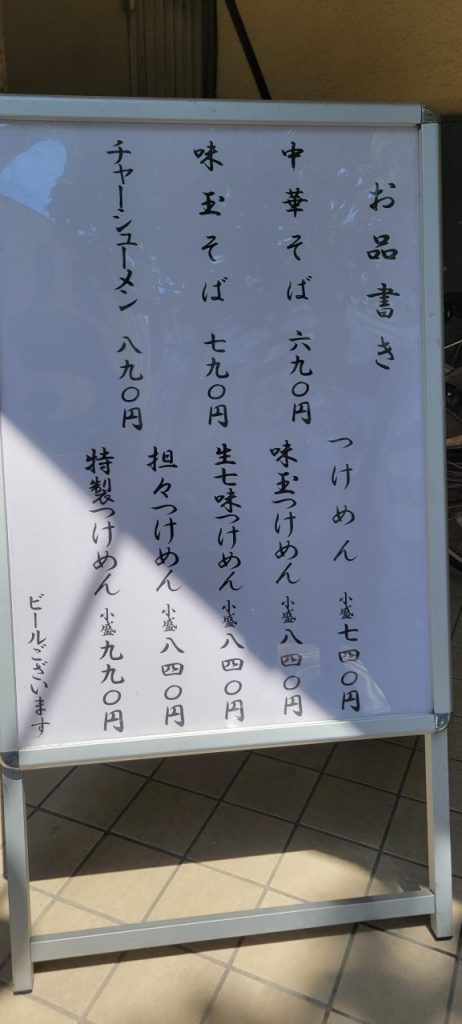 お品書き
中華そば 六九〇円
味玉そば 七九〇円
チャーシューメン 八九〇円
つけめん 小盛 七四〇円
味玉つけめん 小盛 八四〇円
生七味つけめん 小盛 八四〇円
担々つけめん 小盛 八四〇円
特製つけめん 小盛 九九〇円
ビールございます